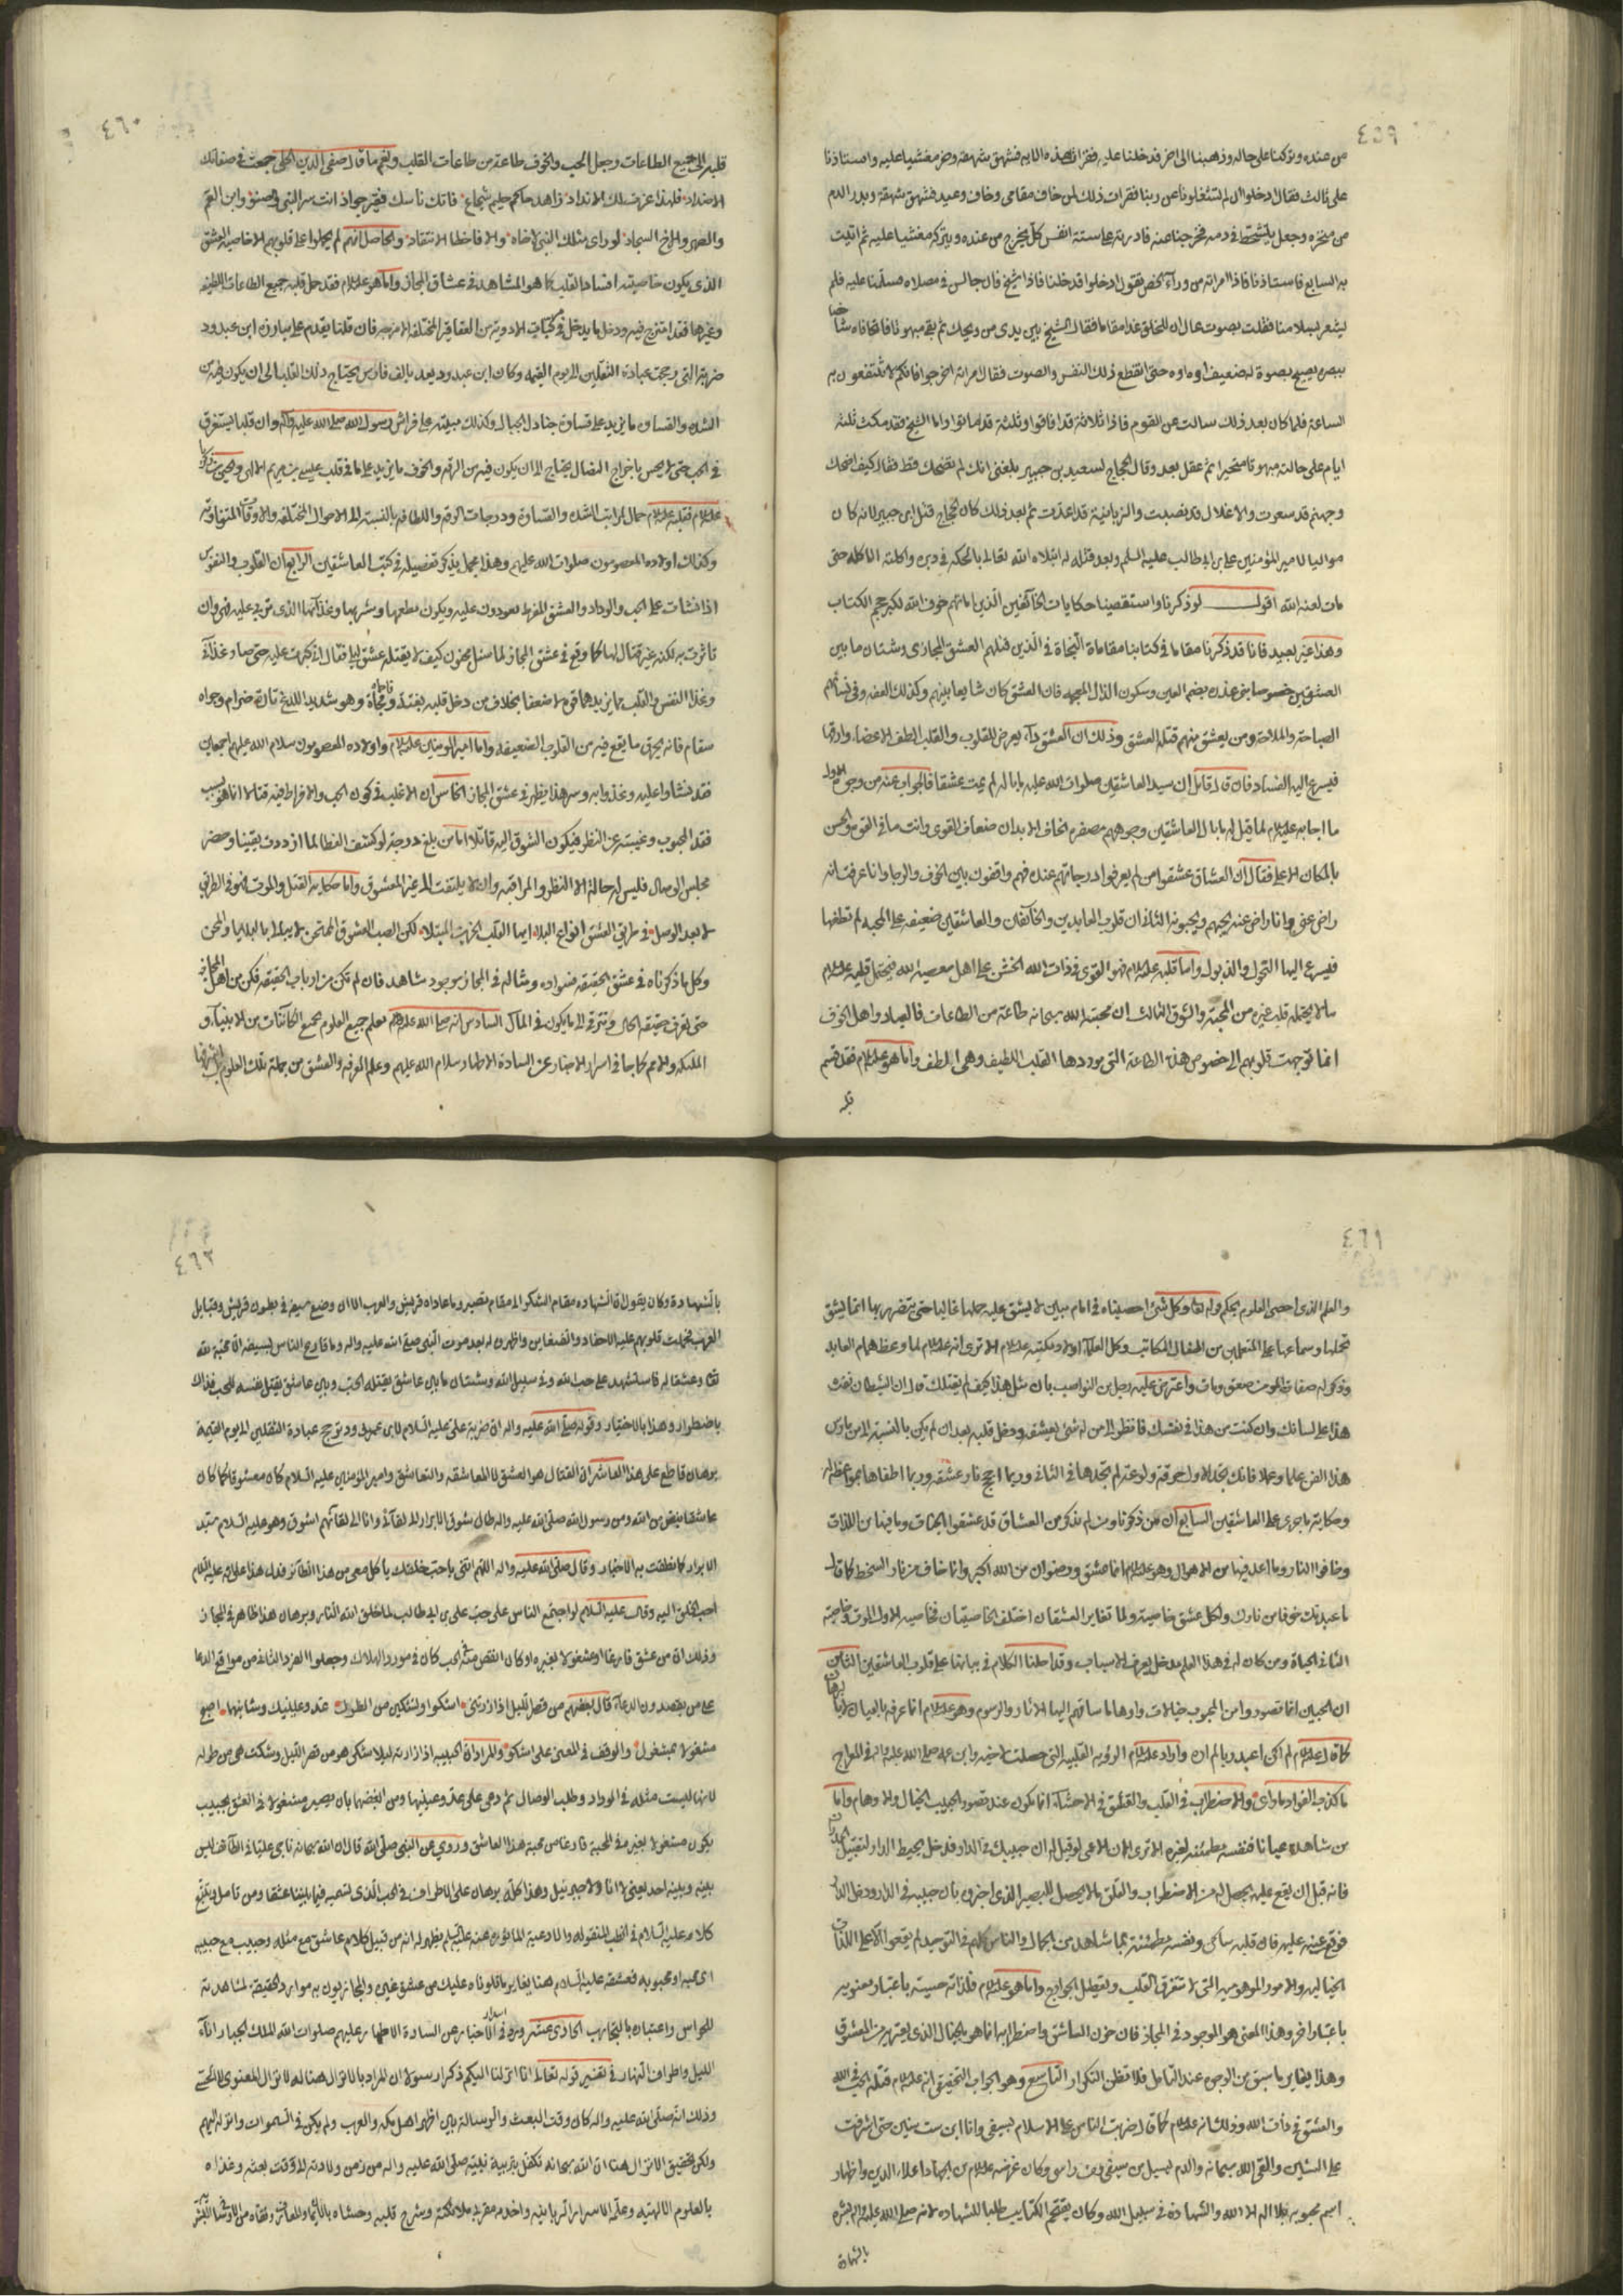 ٤٥٩
من عنده وتركناه على حاله وذهبنا الى اخر فدخلنا عليه فقرات هذه الايه فشهق شهقه وخر مغشيا عليه واستاذنا
على ثالث فقال ادخلوا ان لم تشغلونا عن ربنا فقرات ذلك لمن خاف مقامى وخاف وعيد فشهق شهقة وبدر الدم
من منخره وجعل يتشحط في دمه فخرجنا عنه فادرته على ستة انفس كل يخرج من عنده ويتركه مغشيا عليه ثم اتيت
به السابع فاستاذنا فاذا امراته من ورآء الخص تقول ادخلوا فدخلنا فاذا شيخ فان جالس في مصلاه فسلمنا عليه فلم
يشعر بسلامنا فقلت بصوت عال ان للخلق غدا مقاما فقال الشيخ بين يدى من ويحك ثم بقى مبهوتا فاتحا فاه شاخصا
ببصره يصيح بصوة له ضعيف اوه اوه حتى انقطع ذلك النفس والصوت فقال امراته اخرجوا فانكم لا تنتفعون به
الساعة فلما كان بعد ذلك سالت عن القوم فاذا ثلاثة قد افاقوا وثلثة قد ماتوا واما الشيخ فقد مكث ثلثة
ايام على حالته مبهوتا متحيرا ثم عقل بعد وقال الحجاج لسعيد بن جبير بلغنى انك لم تضحك قط فقال كيف اضحك
وجهنم قد سعرت والاغلال قد نصبت والزبانية قد اعدت ثم بعد ذلك كان الحجاج قتل ابن جبير لانه كان
مواليا لامير المؤمنين على بن ابى طالب عليه السلم وبعد قتله له ابتلاه الله تعالى بالحكه في دبره واكلته الاكله حتى
مات لعنه الله اقول لو ذكرنا واستقصينا حكايات الخآئفين الذين اماتهم خوف الله لكبر حجم الكتاب
وهذا غير بعيد فانا قد ذكرنا مقاما في كتابنا مقامات النجاة في الذين قتلهم العشق المجازى وشتان ما بين
العشقين خصوصا بنى عذره بضم العين وسكون الذال المعجمه فان العشق كان شايعا بينهم وكذلك العفه وفى نسآئهم
الصباحة والملاحة ومن يعشق منهم قتله العشق وذلك ان العشق دآء يعرض للقلوب والقلب الطف الاعضاء وارقها
فيسرع اليه الفساد فان قال قائل ان سيد العاشقين صلوات الله عليه ما باله لم يمت عشقا فالجواب عنه من وجوه الاول
ما اجاب به عليه السلام لما قيل له ما بال العاشقين وجوههم مصفره نحاف الابدان ضعاف القوى وانت ما في القوه والحسن
بالمكان الاعلى فقال ان العشاق عشقوا من لم يعرفوا درجاتهم عنده فهم واقفون بين الخوف والرجا وانا عرفت انه
راض عنى وانا راض عنه يحبهم ويحبونه الثانى ان قلوب العابدين والخآئفين والعاشقين ضعيفه على المحبه لم تطقها
فيسرع اليها النحول والذبول واما قلبه عليه السلام فهو القوى في ذات الله الخشن على اهل معصية الله فيحتمل قلبه عليه السلام
ما لا يحتمله قلب غيره من المحبه والشوق الثالث ان محبة الله سبحانه طاعة من الطاعات فالعباد واهل الخوف
انما توجهت قلوبهم الى خصوص هذه الطاعه التى موردها القلب اللطيف وهى الطف واما هو عليه السلام فقد قسم
قلبه
٤٦٠
قلبه الى جميع الطاعات وجعل الحب والخوف طاعة من طاعات القلب ونعم ما قال صفى الدين الحلى جمعت في صفاتك
الاضداد فلهذا عزت لك الانداد زاهد حاكم حليم شجاع فاتك ناسك فقير جواد انت سر النبى والصنو وابن العم
والصهر والاخ السجاد لو راى مثلك النبى لاخاه والا فاخطا الانتقاد والحاصل انهم لم يحملوا على قلوبهم الا خاصية العشق
الذى يكون خاصيته افساد القلب كما هو المشاهد في عشاق المجاز واما هو عليه السلام فقد حمل قلبه جميع الطاعات اللطيفه
وغيرها فقد امتزج فيه ودخل ما يدخل في مركبات الادوية من العقاقير المختلفة الامزجه فان قلنا يقدم على مبارزة ابن عبدود
ضربته التى رجحت عبادة الثقلين الى يوم القيمه وكان ابن عبدود يعد بالف فارس يحتاج ذلك القلب الى ان يكون فيه من
الشده والقساوه ما يزيد على قساوة جنادل الجبال وكذلك مبيته على فراش رسول الله صلى الله عليه وآله وان قلبا يستغرق
في الحب حتى لا يحس باخراج النصال يحتاج الى ان يكون فيه من الرقه والخوف ما يزيد على ما في قلب عيسى بن مريم الالهى ويحيى بن زكريا
عليه السلام فقلبه عليه السلام حمال لمراتب الشده والقساوة ودرجات الرقه واللطافه بالنسبة الى الاحوال المختلفه والاوقات المتفاوته
وكذلك اولاده المعصومون صلوات الله عليهم وهذا مجمل يذكر تفصيله في كتب العاشقين الرابع ان القلوب والنفوس
اذا نشات على الحب والوداد والعشق المفرط تعودون عليه ويكون مطعمها ومشربها وغذآئها الذى تربى عليه فهى وان
تاثرت به لكنه غير قتال لها كما وقع في عشق المجاز لما سئل مجنون كيف لا يقتله عشق ليلى فقال انى كبرت عليه حتى صار غذآئى
وغذا النفس والقلب مما يزيدهما قوه لا ضعفا بخلاف من دخل قلبه بغتة وفجأة وهو شديد اللدغ تارة ضرام وجواه
سقام فانه يحرق ما يقع فيه من القلوب الضعيفه واما امير المومنين عليه السلام واولاده المعصومون سلام الله عليهم اجمعين
فقد نشاوا عليه وغذوا به وسر هذا يظهر في عشق المجاز الخامس ان الاغلب في كون الحب والافراط فيه قتالا انما هو بسبب
فقد المحبوب وغيبته عن النظر فيكون الشوق اليه قاتلا اما من بلغ درجة لو كشف الغطا لما ازددت يقينا وحضر
مجلس الوصال فليس له حالة الا النظر والمراقبه وان لا يلتفت الى غير المعشوق واما حكاية القتل والموت فهو في الطريق
لا بعد الوصل في طريق العشق انواع البلا ايها القلب الحزين المبتلا لكن الصب العشوق الممتحن لا يبالى بالبلايا والمحن
وكل ما ذكرناه في عشق الحقيقه فنوادره ومثاله في المجاز موجود شاهد فان لم تكن من ارباب الحقيقه فكن من اهل المجاز
حتى تعرف حقيقة الحال وتترقى الى ما يكون في المآل السادس انه صلى الله عليه وآله معلم جميع العلوم لجميع الكائنات من الانبيآء و
الملئكه والامم كما جا في اسرار الاخبار عن السادة الاطهار سلام الله عليهم وعلم المعرفه والعشق من جملة تلك العلوم بل اشرفها
٤٦١
والعلم الذى احصى العلوم بحكم قوله تعالى وكل شئ احصيناه في امام مبين لا يشق عليه حملها غالبا حتى يتضرر بها انما يشق
تحملها وسماعها على المتعلمين من امثال المكاتب وكل العلماء اولاد مكتبه عليه السلام الا ترى انه عليه السلام لما وعظ همام العابد
وذكر له صفات المومن صعق ومات واعترض عليه رجل من النواصب بان مثل هذا كيف لم يقتلك قال ان الشيطان نفث
هذا على لسانك وان كنت من هذا في شك فانظر الى من له شئ يعشقه ودخل قلبه بعد ان لم يكن بالنسبة الى من مارس
هذا الفن علما وعملا فانك تجد للاول حرقة ولوعة لم تجدها في الثانى وربما اجج نار عشقه وربما اطفاها بمواعظه له
وحكاية ما جرى على العاشقين السابع ان من ذكرنا ومن لم نذكر من العشاق قد عشقوا الجنات وما فيها من اللذات
وخافوا النار وما اعد فيها من الاهوال وهو عليه السلام انما عشق ورضوان من الله اكبر وانما خاف من نار السخط كما قال
ما عبدتك خوفا من نارك ولكل عشق خاصية ولما تغاير العشقان اختلف الخاصيتان فخاصية الاول الموت وخاصية
الثانى الحياة ومن كان له في هذا العلم مدخل يعرف الاسباب وقد احلنا الكلام في بيانها على قلوب العاشقين الثامن
ان المحبين انما تصوروا من المحبوب خيالات واوهاما ساقتهم اليها الاثار والرسوم وهو عليه السلام انما عرفه بالعيان لا بالبرهان
كما قال عليه السلام لم اكن اعبد ربا لم اره واراد عليه السلام الرؤيه القلبيه التى حصلت لاخيه وابن عمه صلى الله عليه وآله في المعراج
ما كذب الفواد ما راى والاضطراب في القلب والقلق في الاحشآء انما يكون عند تصور الحبيب الخيال والاوهام واما
من شاهده عيانا فنفسه مطمئنه لغيره الا ترى الى ان الاعمى لو قيل له ان حبيبك في الدار فدخل يحيط الدار لتقبيل الجدران
فانه قبل ان يقع عليه يحصل له من الاضطراب والقلق ما لا يحصل للبصير الذى اخبر بان حبيبه في الدار ودخل الدار
فوقع عينه عليه فان قلبه ساكن ونفسه مطمئنة بما شاهد من الجمال والناس كلهم في التوحيد لم يقعوا الا على اللذات
الخياليه والامور الموهوميه التى لا تفرق القلب وتعطل الجوارح واما هو عليه السلام فلذاته حسيته باعتبار ومعنويه
باعتبار اخر وهذا المعنى هو الموجود في المجاز فان حزن العاشق واضطرابه انما هو بالجمال الذى يعتريه من المعشوق
وهذا يغاير ما سبق من الوجوه عند التامل فلا تظن التكرار التاسع وهو الجواب التحقيقى انه عليه السلام قتله الحب في الله
والعشق في ذات الله وذلك انه عليه السلام كما قال ضربت الناس على الاسلام بسيفى وانا ابن ست سنين حتى اشرفت
على الستين والقى الله سبحانه والدم يسيل من سيفى ومن راسى وكان غرضه عليه السلام من الجهاد اعلاء الدين واظهار
اسم محبوبه بلا اله الا الله والشهاده في سبيل الله وكان يقتحم الكتايب طلبا للشهاده لانه صلى الله عليه وآله بشره
بالشهادة
٤٦٢
بالشهادة وكان يقول فالشهاده مقام الشكر لا مقام تصبر وما عاداه قريش والعرب الا ان وضع سيفه في بطون قريش وقبايل
العرب فحملت قلوبهم عليه الاحقاد والضغاين واظهروه له بعد موت النبى صلى الله عليه واله وما قارع الناس بسيفه الا محبة لله
تعالى وعشقا له فاستشهد على حب الله وفى سبيل الله وشتان ما بين عاشق يقتله الحب وبين عاشق يقتل نفسه للحب فذاك
باضطرار وهذا بالاختيار وقوله صلى الله عليه واله ان ضربة على عليه السلام لابن عبد ود ترجح عبادة الثقلين الى يوم القيمة
برهان قاطع على هذا العاشر ان القتال هو العشق لا المعاشقه والتعاشق وامير المؤمنين عليه السلام كان معشوقا كما كان
عاشقا بنص من الله ومن رسول الله صلى الله عليه واله طال شوق الابرار الى لقآئى وانا الى لقآئهم اشوق وهو عليه السلام سيد
الابرار كما نطقت به الاخبار وقال صلى الله عليه واله اللهم ائتنى باحب خلقك ياكل معى من هذا الطآئر فدل هذا على انه عليه السلام
احب الخلق اليه وقال عليه السلام لو اجتمع الناس على حب على بن ابى طالب لما خلق الله النار وبرهان هذا ظاهر في المجاز
وذلك ان من عشق فارغا او مشغولا بغيره او كان انقص منه في الحب كان في موردا لهلاك وجعلوا الفرد الثانى من مواقع الدعا
على من يقصدون الدعاء قال بعضهم من قصر الليل اذا زرتنى اشكو وتشكين من الطول عدو عينيك وشانيهما اصبح
مشغولا بمشغول والوقف في المعنى على اشكو والمراد ان الحبيبه اذا زارته ليلا شكى هو من قصر الليل وشكت هى من طوله
لانها ليست مثله في الوداد وطلب الوصال ثم دعى على عدو عينيها ومن ابغضها بان يصير مشغولا في العشق بحبيب
يكون مشغولا بغيره في المحبة فارغا من محبة هذا العاشق وروى عن النبى صلى الله قال ان الله سبحانه ناجى عليا في الطآئف ليس
بينه وبينه احد يعنى لا انا ولا جبرئيل وهذا كله برهان على الاطراف في الحب الذى نسميه فيما بيننا عشقا ومن تامل في تتبع
كلامه عليه السلام في الخطب المنقوله والادعية الماثوره عنه عليه السلام يظهر له انه من قبيل كلام عاشق مع مثله وحبيب مع حبيبه
اى محبه او محبوبه فعشقه عليه السلام هنا يغاير ما تلوناه عليك من عشق غيره والمجازيون به موارد الحقيقة لمشاهدته
للحواس واعتباره بالتجارب الحادى عشر ورد في اسرار الاخبار عن السادة الاطهار عليهم صلوات الله الملك الجبار اناء
الليل واطراف النهار في تفسير قوله تعالى انا انزلنا اليكم ذكرا رسولا ان المراد بالانزال هنا له الانزال المعنوى لا الحسى
وذلك انه صلى الله عليه واله كان وقت البعث والرسالة بين اظهر اهل مكه والعرب ولم يكن في السموات وانزله اليهم
ولكن تحقيق الانزال هنا ان الله سبحانه تكفل بتربية نبيه صلى الله عليه واله من زمن ولادته الى وقت بعثه وغذاه
بالعلوم الالهيه وعلم الاسرار الربانيه واخدمه مقربى ملائكته وشرح قلبه وحشاه بالايمان والمعارف ونقاه من الاوشاب البشريه